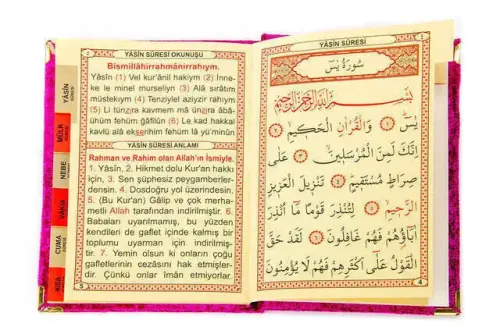 YÂSİN SÛRESİ OKUNUŞU
Bismillâhirrahmânirrahıym.
Yâsîn (1) Vel kur'ânil hakiym (2) İnne-
ke le minel murseliyn (3) Alâ sırâtım
müstekıym (4) Tenziylel aziyzir rahıym
(5) Li tünzira kavmem mâ ünzira âbâ-
ühüm fehüm ğâfilûn (6) Le kad hakkal
kavlü alâ ekserihim fehüm lâ yü'minûn
YÂSİN SÛRESİ ANLAMI
Rahman ve Rahim olan Allah'ın İsmiyle.
1. Yâsîn. 2. Hikmet dolu Kur'an hakkı
için, 3. Sen şüphesiz peygamberler-
densin. 4. Dosdoğru yol üzerindesin.
5. (Bu Kur'an) Gâlip ve çok merha-
metli Allah tarafından indirilmiştir. 6.
Babaları uyarılmamış, bu yüzden
kendileri de gaflet içinde kalmış bir
toplumu uyarman için indirilmiş-
tir. 7. Yemin olsun ki onların çoğu
gafletlerinin cezasını hak etmişler-
dir. Çünkü onlar iman etmiyorlar.
5
YÂSİN
MÜLK
NEBE
VÂKIA
CUMA
YÂSİN SÛRESİ
سُورَةُ يٰسٓ
بِسْمِ اللّٰهِ الرَّحْمٰنِ الرَّحِيمِ
يٰسٓ ﴿١﴾ وَالْقُرْاٰنِ الْحَكِيمِ ﴿٢﴾
اِنَّكَ لَمِنَ الْمُرْسَلِينَ ﴿٣﴾ عَلٰى
صِرَاطٍ مُسْتَقِيمٍ ﴿٤﴾ تَنْزِيلَ الْعَزِيزِ
الرَّحِيمِ ﴿٥﴾ لِتُنْذِرَ قَوْمًا مَٓا اُنْذِرَ
اٰبَٓاؤُ۬هُمْ فَهُمْ غَافِلُونَ ﴿٦﴾ لَقَدْ حَقَّ
الْقَوْلُ عَلٰٓى اَكْثَرِهِمْ فَهُمْ لَا يُؤْمِنُونَ
4